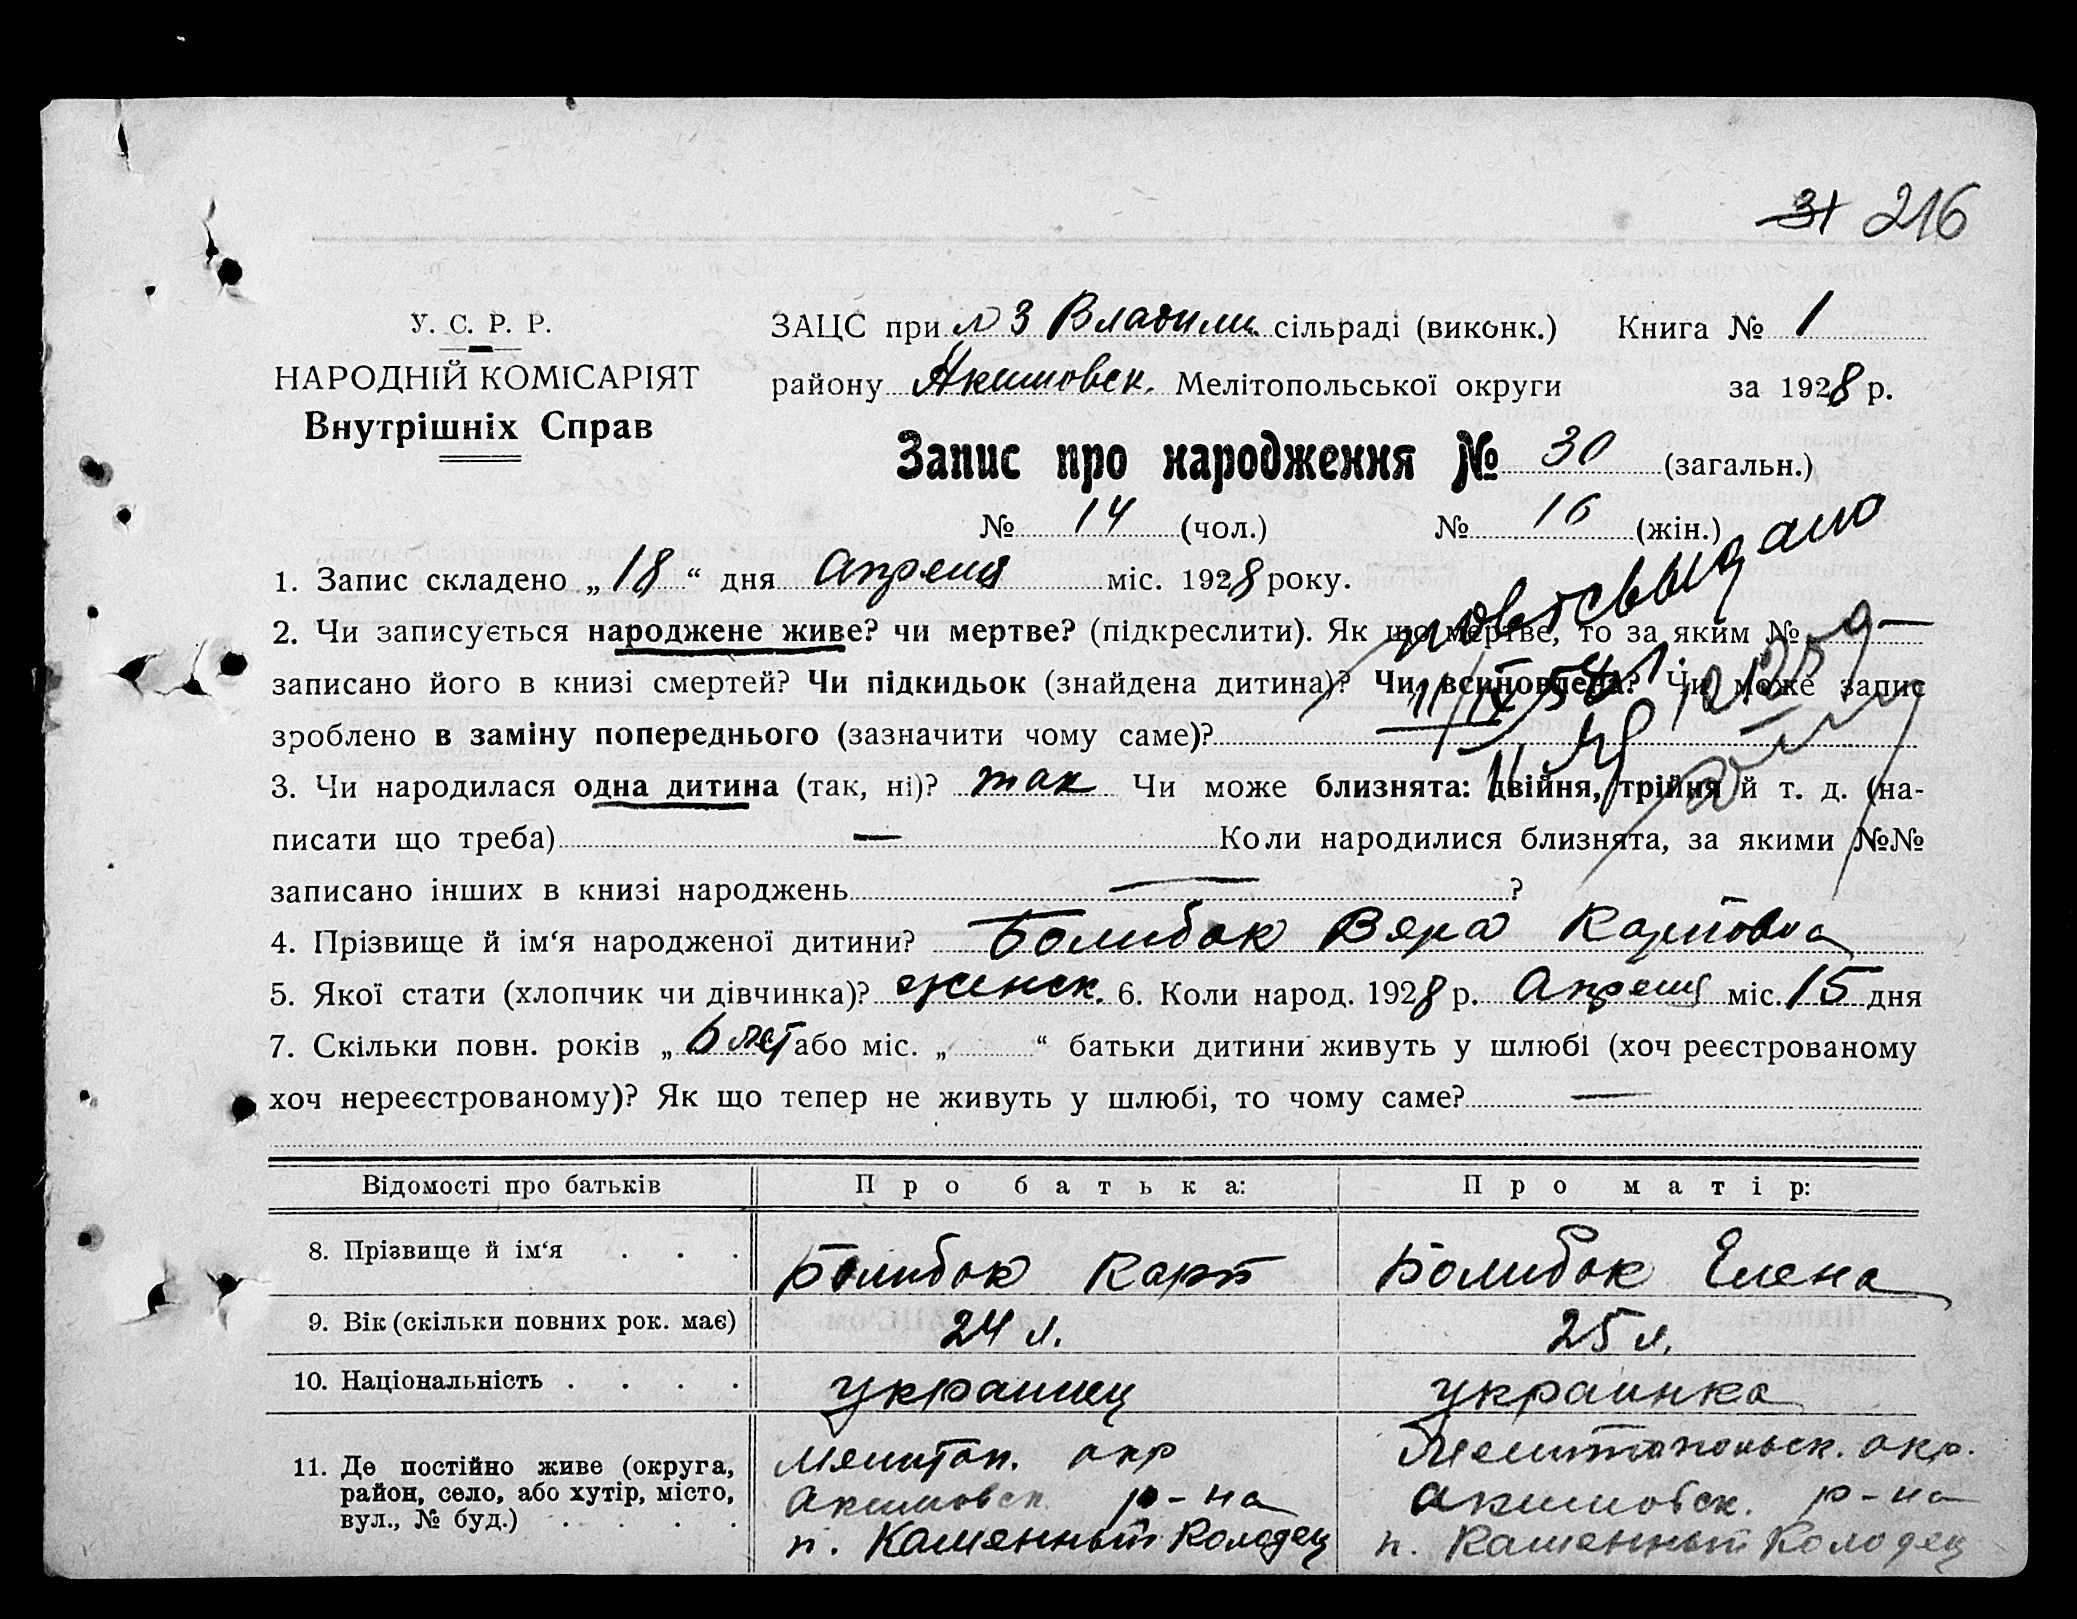 31 216
У. С. Р. Р.
НАРОДНІЙ КОМІСАРІЯТ
Внутрішніх Справ
ЗАЦС при 3 Владим. сільраді (виконк.) Книга № 1
району Акимовск. Мелітопольської округи за 1928 р.
Запис про народження № 30 (загальн.)
№ 14 (чол.) № 16 (жін.)
1. Запис складено „18“ дня Апреля міс. 1928 року.
2. Чи записується народжене живе? чи мертве? (підкреслити). Як що мертве, то за яким № —
записано його в книзі смертей? Чи підкидьок (знайдена дитина)? Чи всиновлена? Чи може запис
зроблено в заміну попереднього (зазначити чому саме)?
3. Чи народилася одна дитина (так, ні)? так Чи може близнята: двійня, трійня й т. д. (на-
писати що треба) — Коли народилися близнята, за якими №№
записано інших в книзі народжень — ?
4. Прізвище й ім‘я народженої дитини? Болибок Вяра Карповна
5. Якої стати (хлопчик чи дівчинка)? женск. 6. Коли народ. 1928 р. Апреля міс. 15 дня
7. Скільки повн. років „6 лет або міс. „ “ батьки дитини живуть у шлюбі (хоч реєстрованому
хоч нереєстрованому)? Як що тепер не живуть у шлюбі, то чому саме? —
Відомості про батьків Про батька: Про матір:
8. Прізвище й ім‘я . . . Болибок Карп Болибок Елена
9. Вік (скільки повних рок. має) 24 л. 25 л.
10. Національність . . . . украинец украинка
11. Де постійно живе (округа, Мелитоп. окр Мелитопольск. окр.
район, село, або хутір, місто, Акимовск р-на Акимовск. р-на
вул., № буд.) . . . . п. Каменный Колодец п. Каменный Колодец